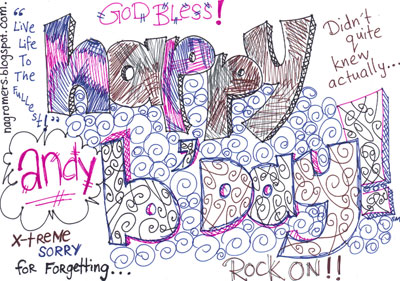 GOD BLESS!
"Live
Life To
The
Fullest!"
nagromers.blogspot.com.
happy
Didn't
quite
knew
actually...
andy
b'day!
X-treme
SORRY
for Forgetting...
ROCK ON!!